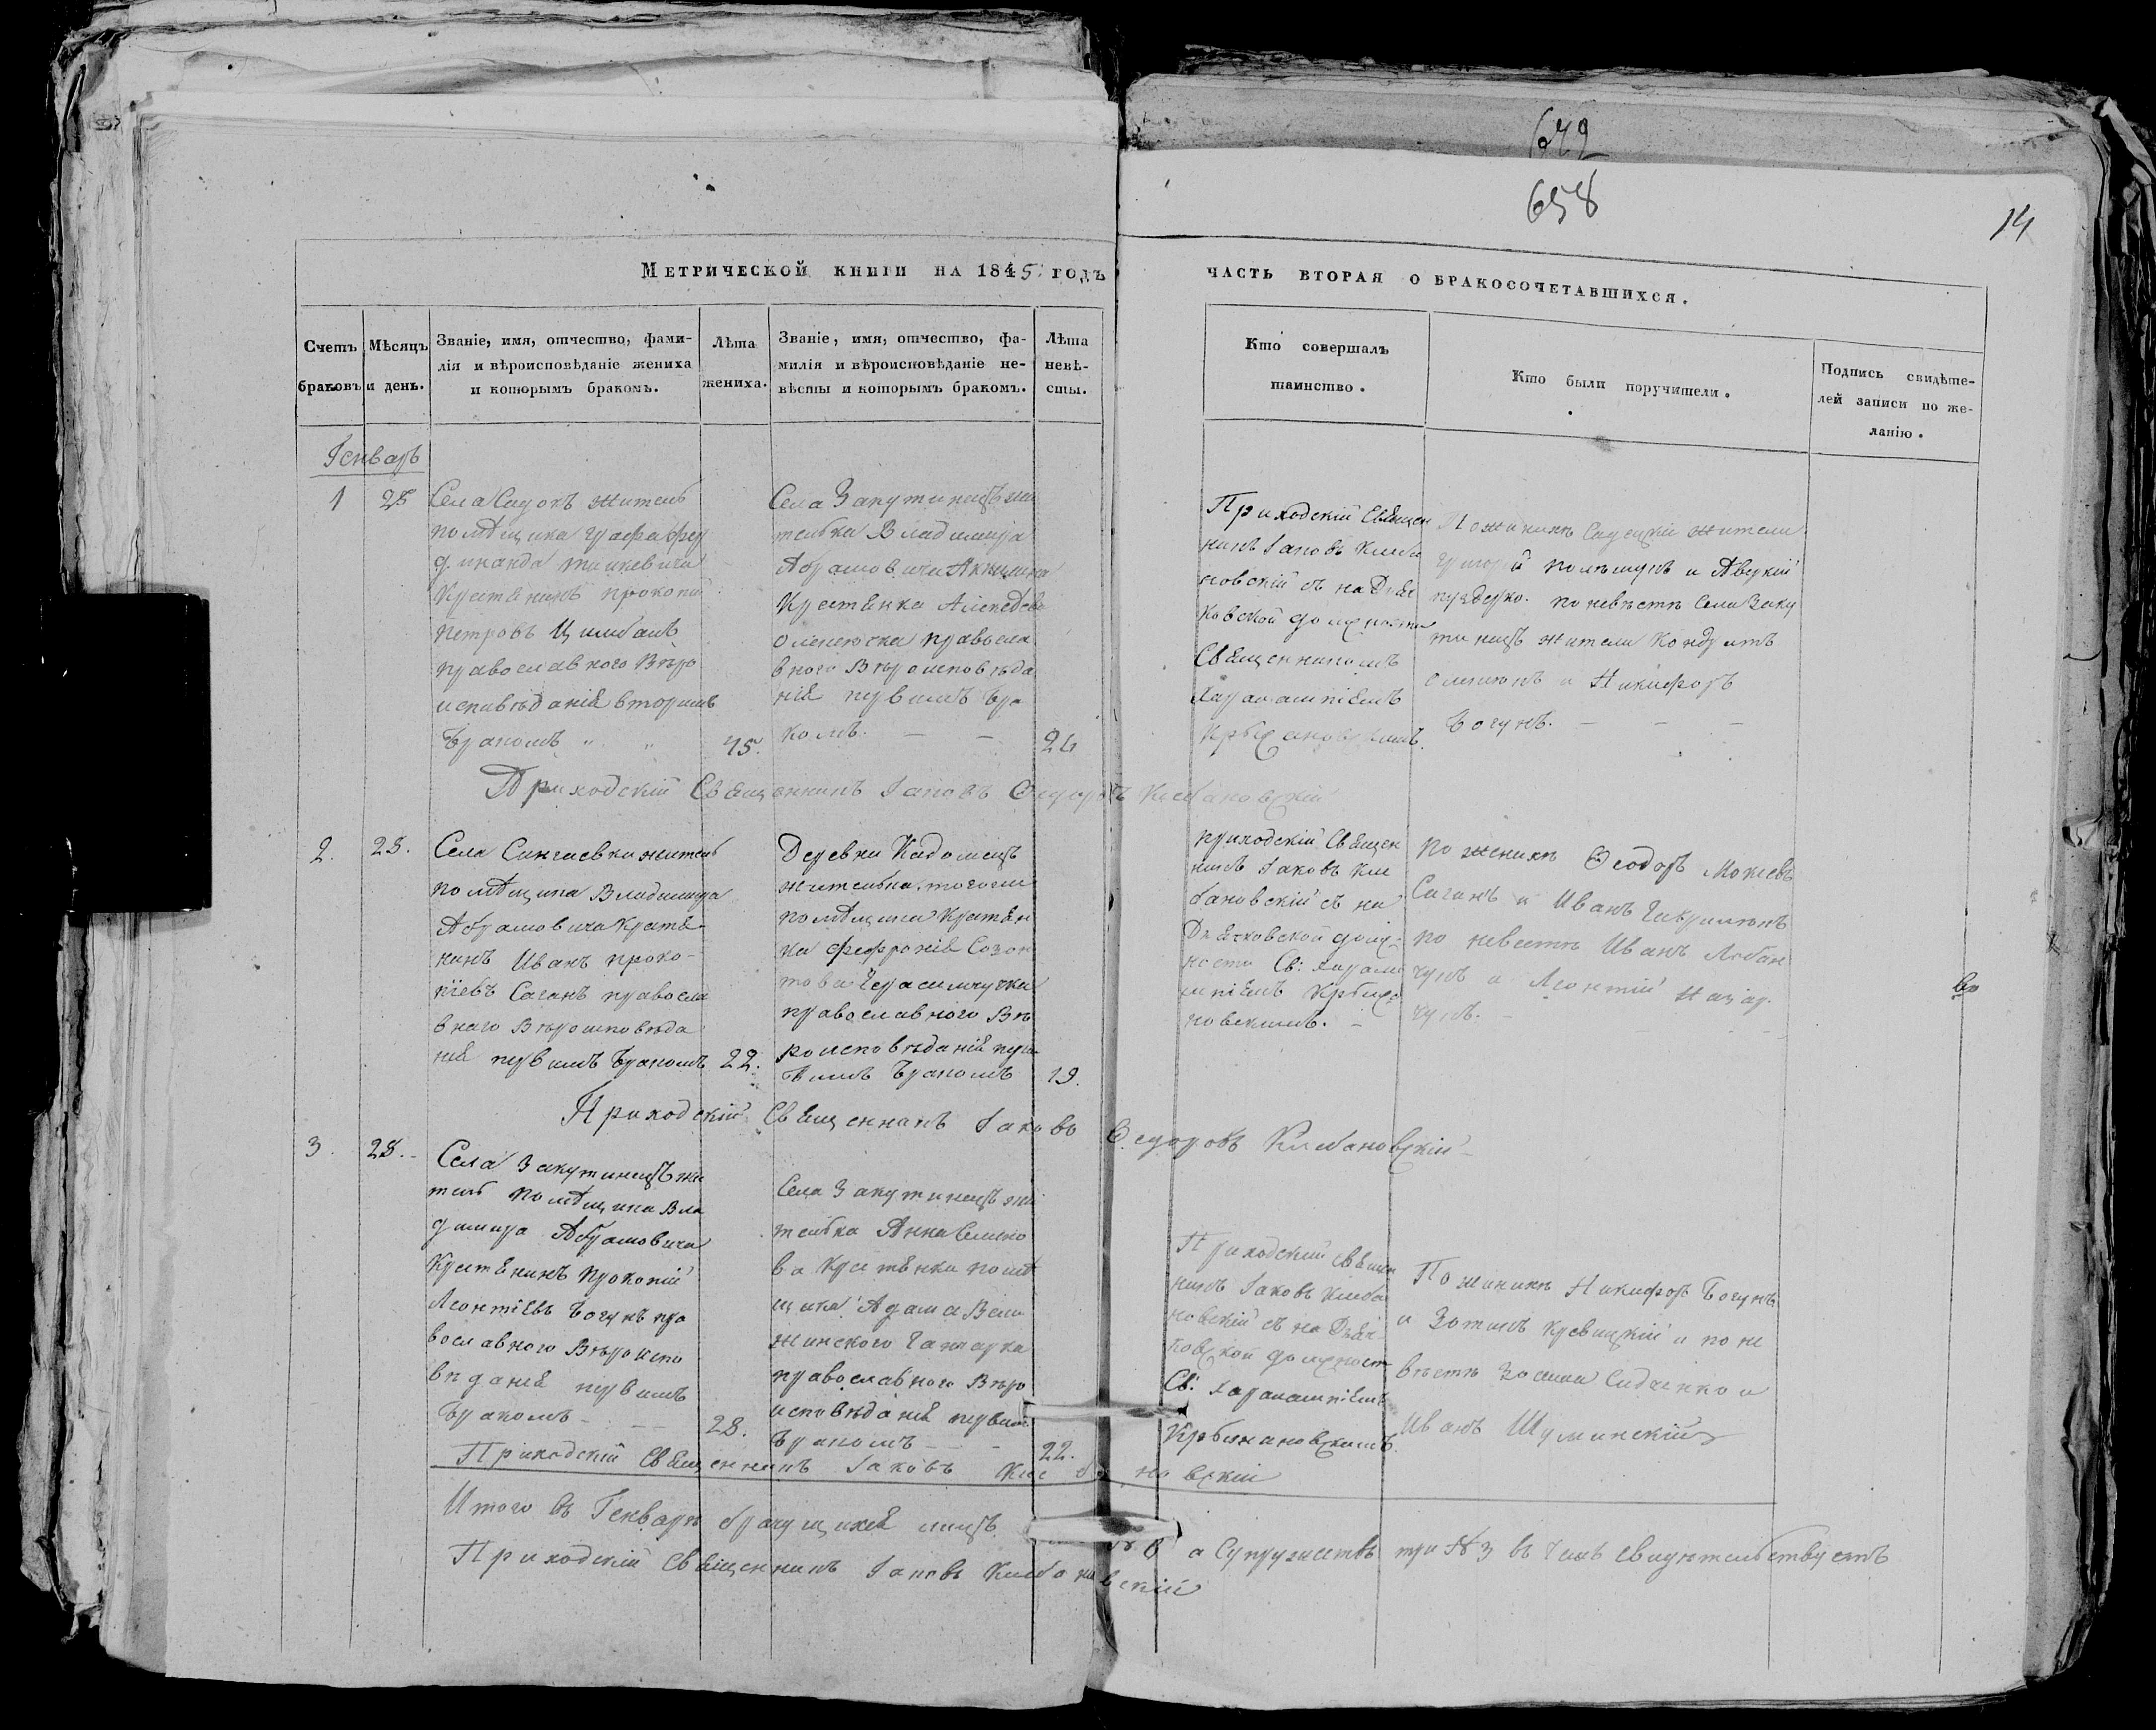 672
658
14
Метрической книги на 1845 годъ
часть вторая о бракосочетавшихся.
Счетъ браковъ
Мѣсяцъ и день.
Званіе, имя, отчество, фами-
лія и вѣроисповѣданіе жениха
и которымъ бракомъ.
Лѣта
жениха.
Званіе, имя, отчество, фа-
милія и вѣроисповѣданіе не-
вѣсты и которымъ бракомъ.
Лѣта
невѣ-
сты.
Кто совершалъ
таинство.
Кто были поручители.
Подпись свидѣте-
лей записи по же-
ланію.
Генварь
1
28
Села Садокъ житель
помѣщика графа Фер
динанда Тишкевича
Крестянинъ Прокопій
Петровъ Цимбалъ
православного Вѣро
исповѣданія вторимъ
бракомъ
45.
Села Закутинецъ жи
телька Владимира
Абрамовича
Крестянка
православ
вного Вѣроисповѣда
нія первимъ бра
комъ.
24
Приходскій Священ
никъ Іаковъ Клеба
новскій съ на Дьяч
ковской должности
Священникомъ
Харалампіемъ
Крбановскимъ.
По женихѣ Садецкіи жители
Григорій и Аврамій
по невѣстѣ Села Заку
тинецъ жители Кондратъ
и Никифоръ
Богунъ.
Приходскій Священникъ Іаковъ Федоровъ Клебановскій
2.
28.
Села житель
помѣщика Владимира
Абрамовича Крестя
нинъ Иванъ Проко-
піевъ Саганъ правосла
вного Вѣроисповѣда
нія первимъ бракомъ
22.
Деревни Кадомецъ
жителька того же
помѣщика Крестян
ка Фефронія Созон
това Герасимчучка
православного Вѣ
роисповѣданія пер
вимъ бракомъ
19.
приходскій Священ
никъ Іаковъ Кле
бановскій съ на
Дьячковской долж-
ности Св: Харала
мпіемъ
новскимъ.
по женихѣ Феодоръ Мокіевъ
Саганъ и Иванъ
по невѣстѣ Иванъ Лобан
чукъ и Леонтій Назар
чукъ.
во
Приходскій Священникъ Іаковъ Федоровъ Клебановскій
3.
28.
Села Закутинецъ жи
тель помѣщика Вла
димира Абрамовича
Крестянинъ Прокопій
Леонтіевъ Богунъ пра
вославного Вѣроиспо
вѣданія первимъ
бракомъ
28.
Села Закутинецъ жи
телька Анна Семено
ва Крестянка помѣ
щика Адама Вели
жинского Гончарка
православного Вѣро
исповѣданія первимъ
бракомъ
22.
Приходскій Священ
никъ Іаковъ Клеба
новскій съ на Дьяч
ковской должност
Св: Харалампіемъ
По женихѣ Никифоръ Богунъ
и Зотимъ Кревицкій и по не
вѣстѣ Зосима Сидченко и
Иванъ Шуминскій
Приходскій Священникъ Іаковъ Клебановскій
Итого въ Генварѣ брачущихся лицъ 6 а Супружествъ три № 3 въ чемъ свидѣтельствуемъ
Приходскій Священникъ Іаковъ Клебановскій